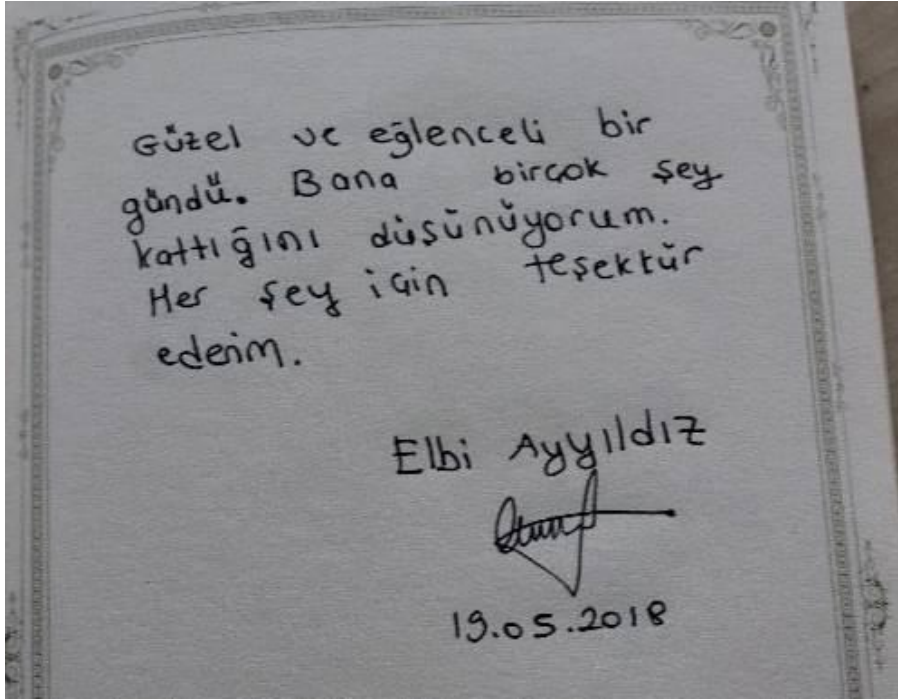 Güzel ve eğlenceli bir
gündü. Bana birçok şey
kattığını düşünüyorum.
Her şey için teşekkür
ederim.
Elbi Ayyıldız
19.05.2018